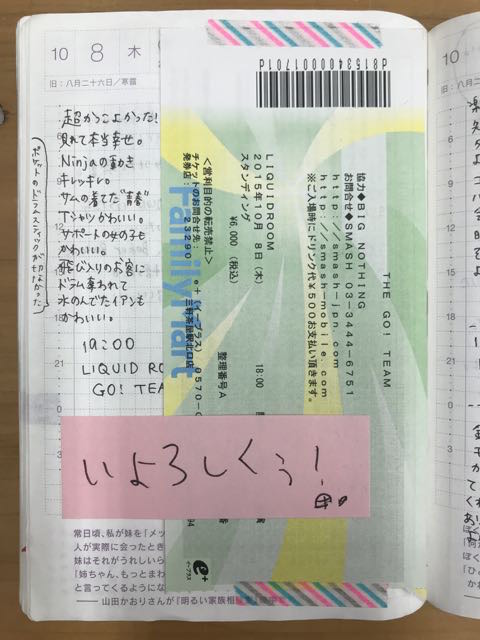 10 8 木
旧:八月二十六日/寒露
超かっこよかった!
見れて本当幸せ。
Ninjaの動き
キレッキレ。
サムの着てた"青春"
Tシャツかわいい。
サポートの女の子も
かわいい。
飛び入りのお客に
ドラム奪われて
水のんでたイアンも
かわいい。
19:00
LIQUID RO
GO! TEA
いよろしくぅ!
常日頃、私が妹を「メッ
人が実際に会ったとき
妹はそれがうれしいら
「姉ちゃん、もっとまわ
と言ってくるようにな
——山田かおりさんが『明るい家族相
d81534000001701d
THE GO! TEAM
協力◆BIG NOTHING
お問合せ◆SMASH 03-3444-6751
http://smash-jpn.com
http://smash-mobile.com
※ご入場時にドリンク代¥500お支払い頂きます。
LIQUIDROOM
2015年10月 8日(木)
18:00
スタンディング
¥6,000 (税込)
整理番号A
<営利目的の転売禁止>
チケットのお問合せ先:
e+(イープラス) 0570-0
発券店: 23290 三軒茶屋駅北口店
FamilyMart
e+
イープラス
10